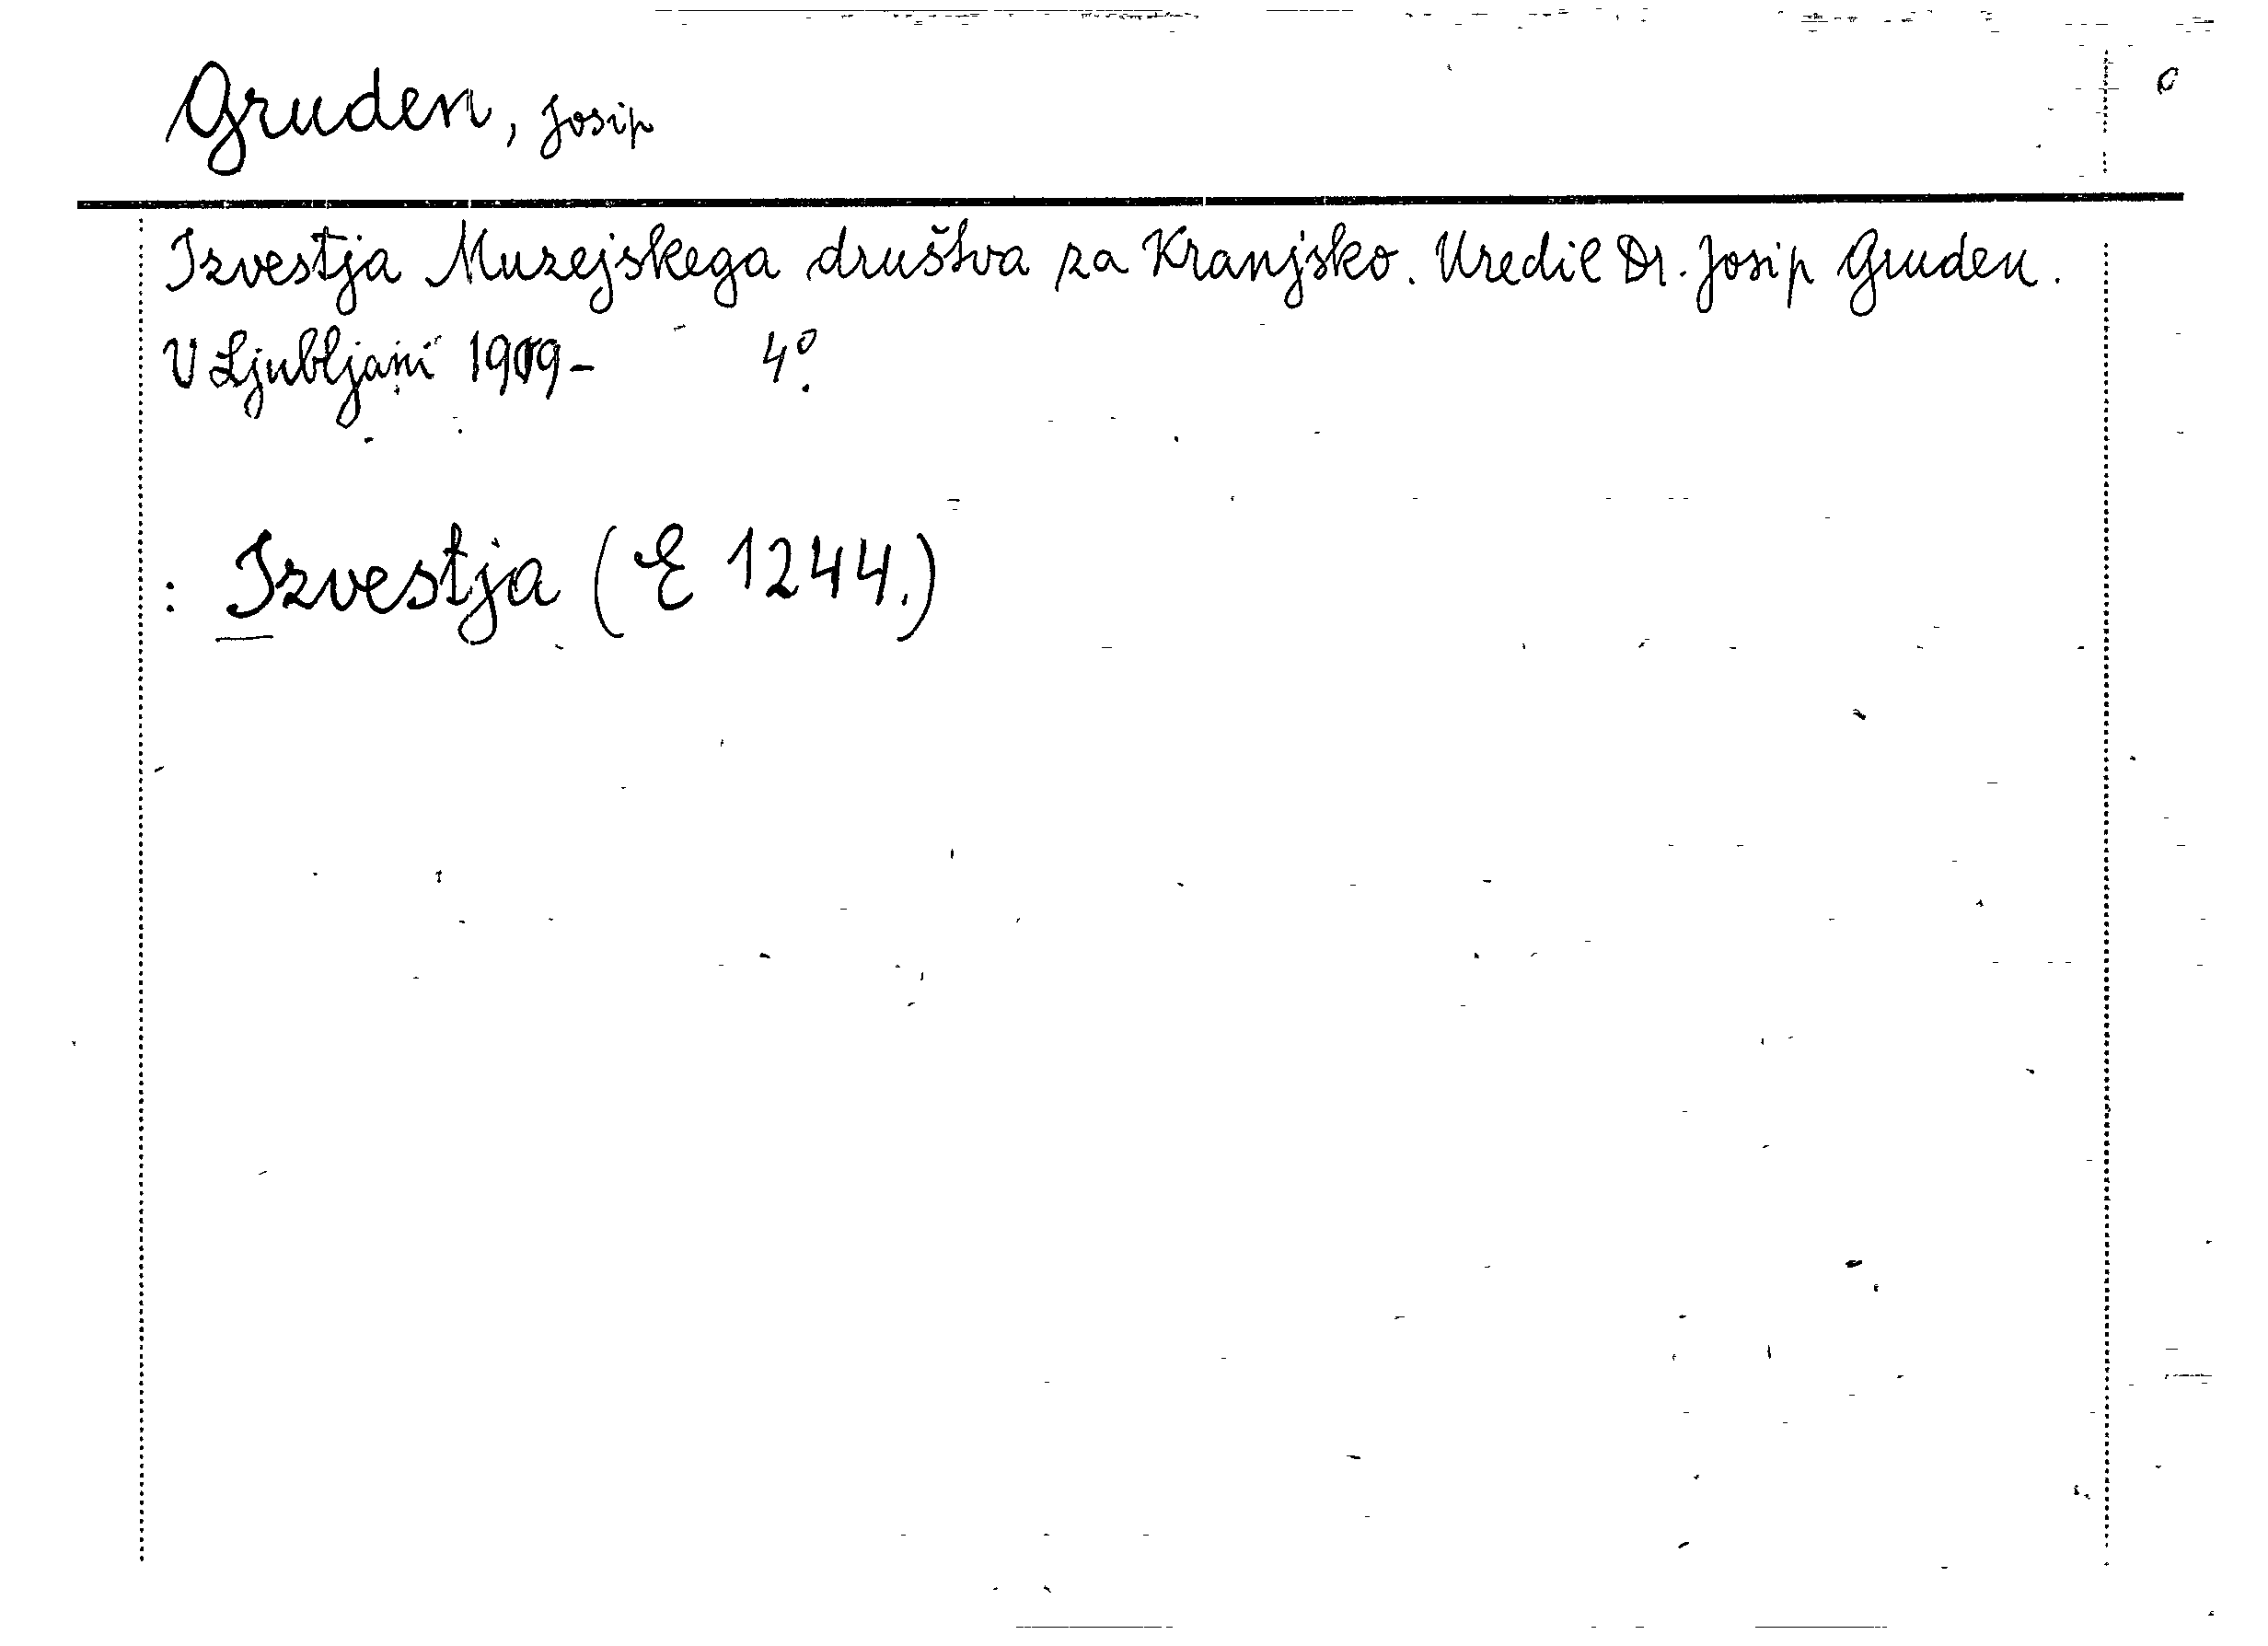 Gruden, Josip
0
Izvestja Muzejskega društva za Kranjsko. Uredil Dr. Josip Gruden.
V Ljubljani 1909- 4º.
: Izvestja (E 1244.)